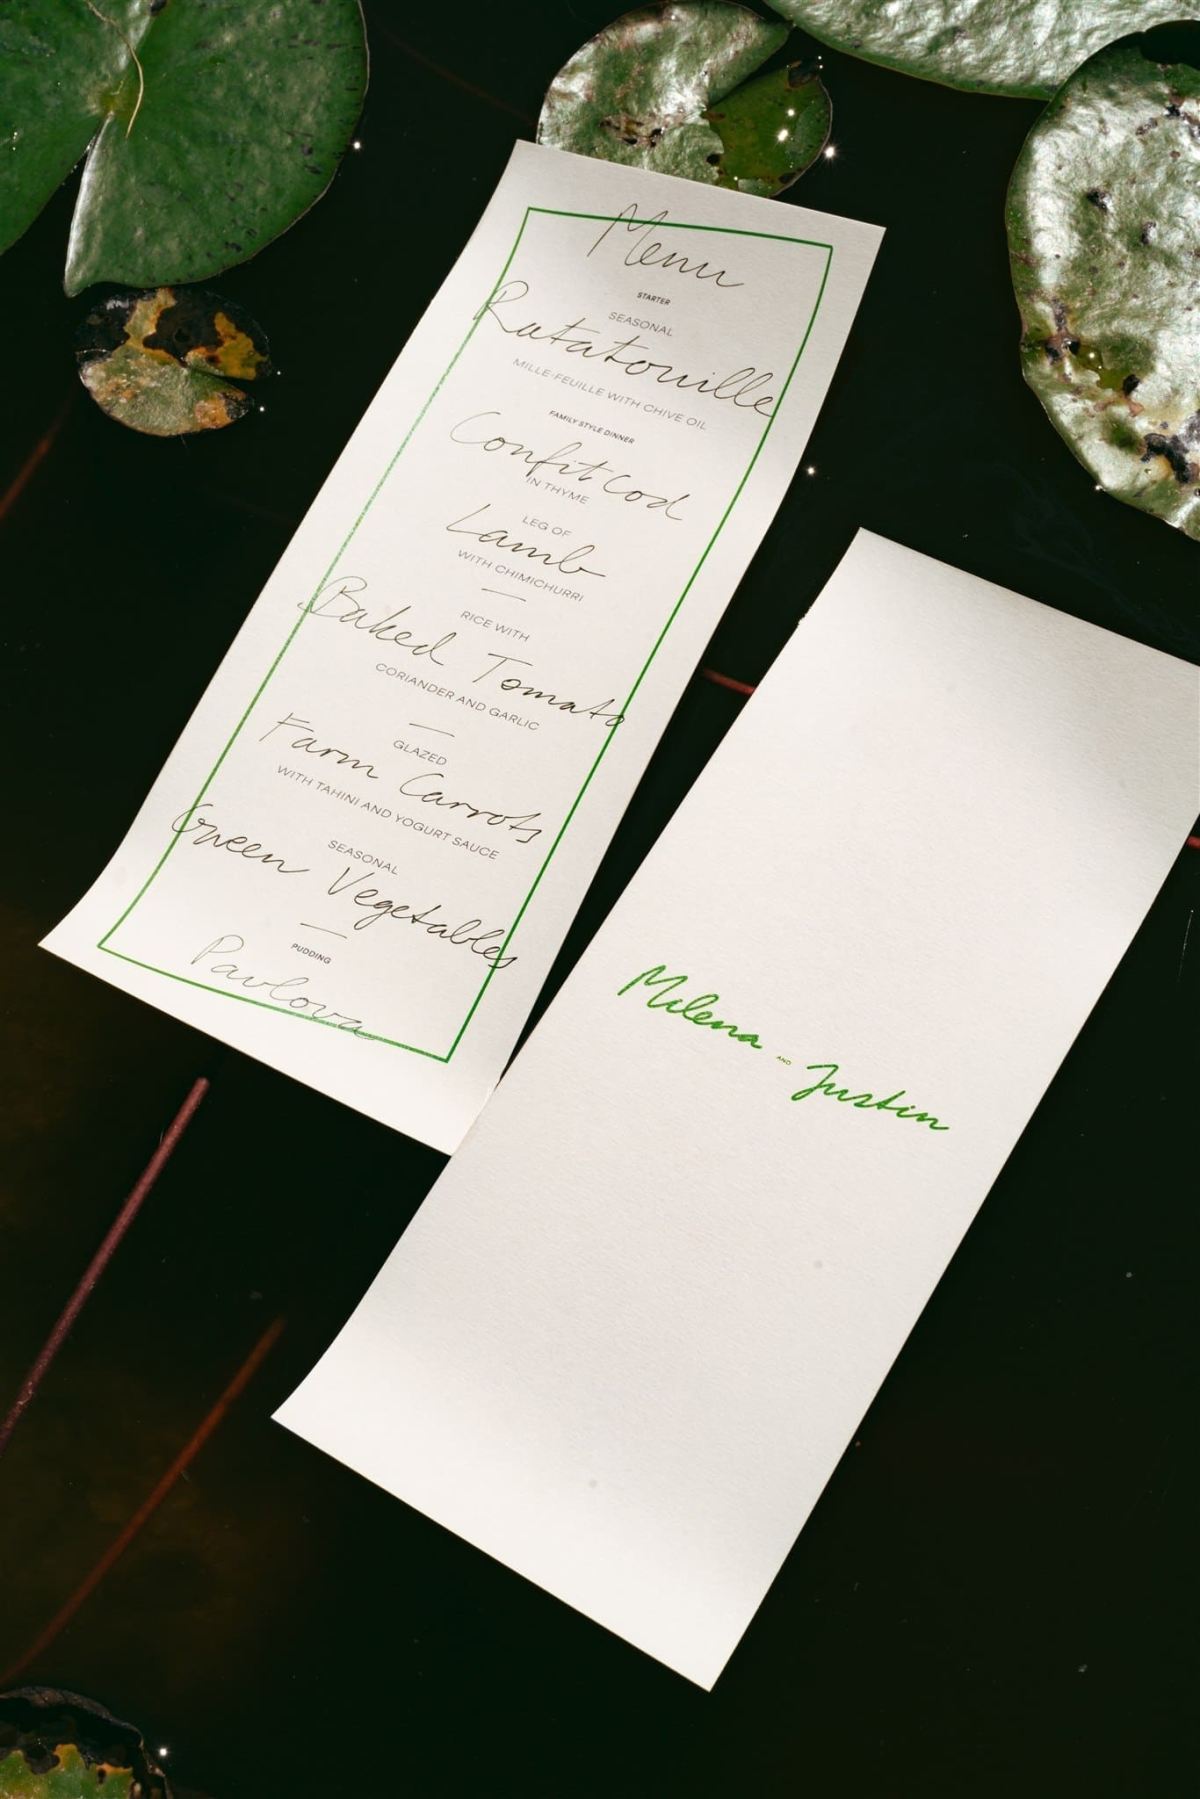 Menu
STARTER
SEASONAL
Ratatouille
MILLE-FEUILLE WITH CHIVE OIL
FAMILY STYLE DINNER
Confit Cod
IN THYME
LEG OF
Lamb
WITH CHIMICHURRI
RICE WITH
Baked Tomato
CORIANDER AND GARLIC
GLAZED
Farm Carrots
WITH TAHINI AND YOGURT SAUCE
SEASONAL
Green Vegetables
PUDDING
Pavlova
Milena AND Justin